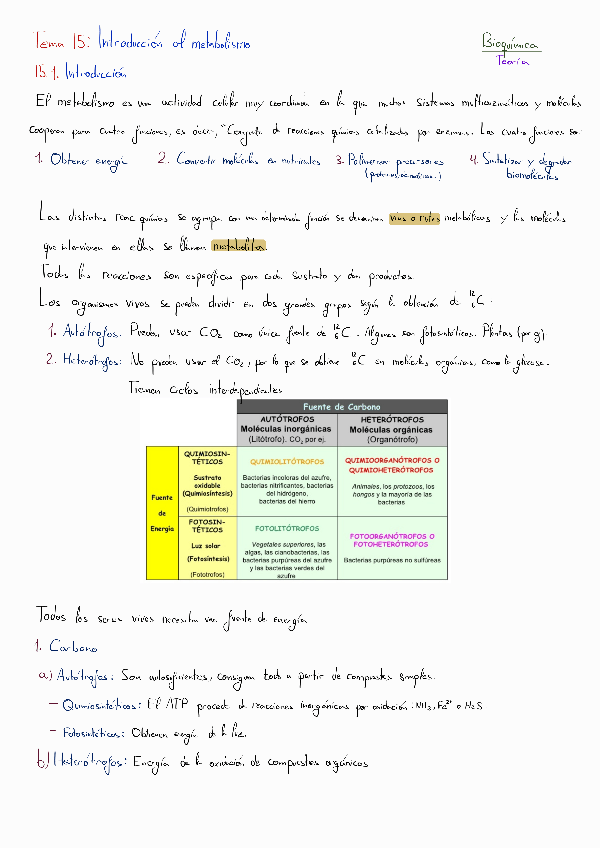 Tema 15: Introducción al metabolismo
Bioquímica
Teoría
15.1. Introducción
El metabolismo es una actividad celular muy coordinada en la que muchos sistemas multienzimáticos y moléculas
cooperan para cuatro funciones, es decir, "Conjunto de reacciones químicas catalizadas por enzimas. Las cuatro funciones son:
1. Obtener energía
2. Convertir moléculas en nutrientes
3. Polimerizar precursores
(proteínas,
4. Sintetizar y degradar
biomoléculas
Las distintas reac químicas se agrupan con una determinada función se denominan vías o rutas metabólicas y las moléculas
que intervienen en ellas se llaman metabolitos.
Todas las reacciones son específicas para cada sustrato y dan productos.
Los organismos vivos se pueden dividir en dos grandes grupos según la obtención de ¹²₆C.
1. Autótrofos: Pueden usar CO₂ como única fuente de ¹²₆C. Algunos son fotosintéticos. Plantas (por ej)
2. Heterótrofos: No pueden usar el CO₂, por lo que se obtiene ¹²₆C en moléculas orgánicas, como la glucosa.
Tienen ciclos interdependientes
Fuente de Carbono
AUTÓTROFOS
Moléculas inorgánicas
(Litótrofo). CO₂ por ej.
HETERÓTROFOS
Moléculas orgánicas
(Organótrofo)
Fuente
de
Energía
QUIMIOSIN-
TÉTICOS
Sustrato
oxidable
(Quimiosíntesis)
(Quimiotrofos)
QUIMIOLITÓTROFOS
Bacterias incoloras del azufre,
bacterias nitrificantes, bacterias
del hidrógeno,
bacterias del hierro
QUIMIOORGANÓTROFOS O
QUIMIOHETERÓTROFOS
Animales, los protozoos, los
hongos y la mayoría de las
bacterias
FOTOSIN-
TÉTICOS
Luz solar
(Fotosíntesis)
(Fototrofos)
FOTOLITÓTROFOS
Vegetales superiores, las
algas, las cianobacterias, las
bacterias purpúreas del azufre
y las bacterias verdes del
azufre
FOTOORGANÓTROFOS O
FOTOHETERÓTROFOS
Bacterias purpúreas no sulfúreas
Todos los seres vivos necesitan una fuente de energía
1. Carbono
a) Autótrofos: Son autosuficientes, consiguen todo a partir de compuestos simples.
– Quimiosintéticos: El ATP procede de reacciones inorgánicas por oxidación: NH₃, Fe²⁺ o H₂S
– Fotosintéticos: Obtienen energía de la luz.
b) Heterótrofos: Energía de la oxidación de compuestos orgánicos